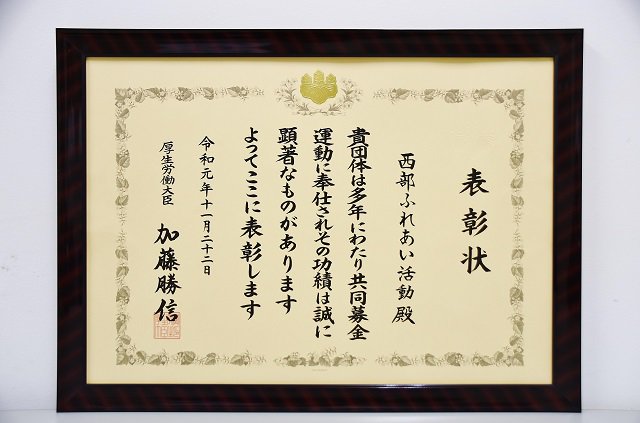 表彰状
西部ふれあい活動殿
貴団体は多年にわたり共同募金
運動に奉仕されその功績は誠に
顕著なものがあります
よってここに表彰します
令和元年十一月二十二日
厚生労働大臣 加藤勝信